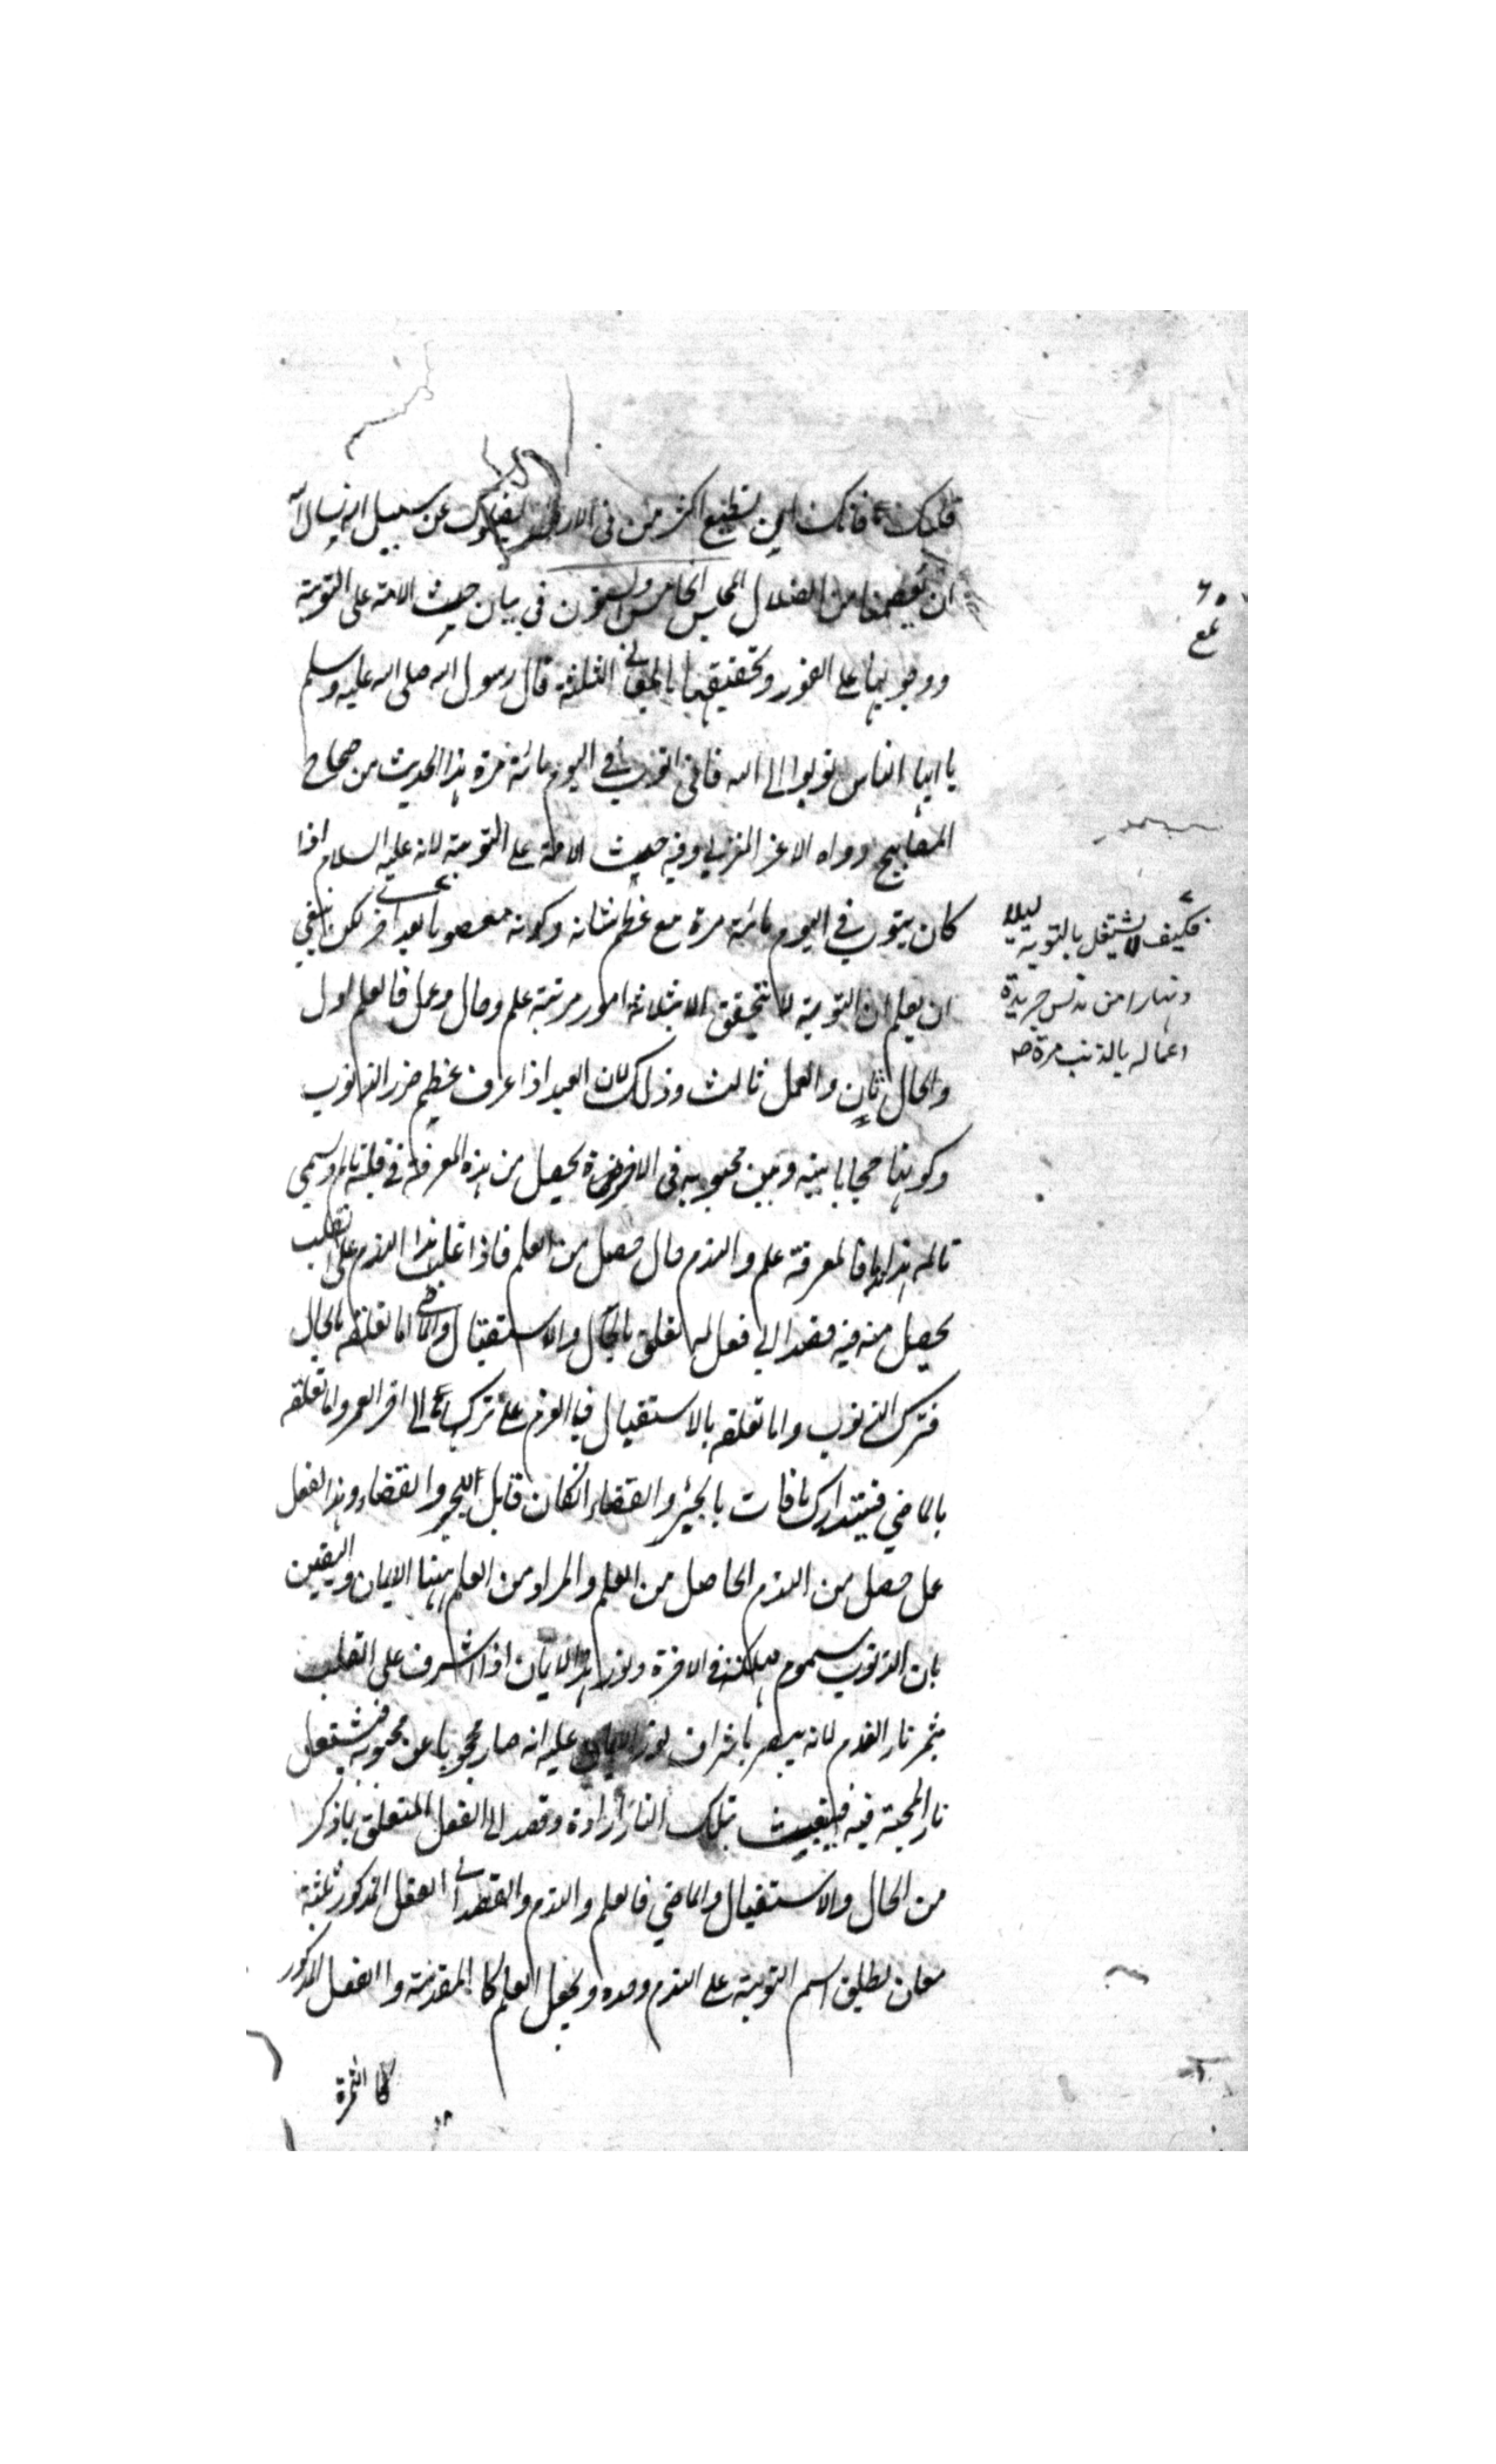 قلبك فانك ان تطع اكثر من في الارض يضلوك عن سبيل الله نسال الله
ان يعصمنا من الضلال المجلس الخامس والستون في بيان حيث الامة على التوبة
ووجوبها على الفور وتحقيقها بالمعاني الثلثة قال رسول الله صلى الله عليه وسلم
يا ايها الناس توبوا الى الله فاني اتوب في اليوم مائة مرة هذا الحديث من صحاح
المصابيح رواه الاغر المزني وفيه حيث الامة على التوبة لانه عليه السلام اذا
كان يتوب في اليوم مائة مرة مع عظم شانه وكونه معصوما لكن ينبغي
ان يعلم ان التوبة لا تتحقق الا بثلاثة امور مرتبة علم وحال وعمل فالعلم اول
والحال ثان والعمل ثالث وذلك لان العبد اذا عرف عظيم ضرر الذنوب
وكونها حجابا بينه وبين محبوبه في الاخرة يحصل من هذه المعرفة في قلبه تالم وسمي
تالمه هذا ندما فالمعرفة علم والندم حال حصل من العلم فاذا غلب هذا الندم على القلب
يحصل منه فيه قصد الى فعل له تعلق بالحال والاستقبال والماضي اما تعلقه بالحال
فترك الذنوب واما تعلقه بالاستقبال فبالعزم على تركها الى اخر العمر واما تعلقه
بالماضي فبتدارك ما فات بالجبر والقضاء ان كان قابل الجبر والقضاء وهذا الفعل
عمل حصل من الندم الحاصل من العلم والمراد من العلم ههنا الايمان واليقين
بان الذنوب سموم مهلكة في الاخرة ونور هذا الايمان اذا اشرف على القلب
يثمر نار الندم لانه يبصر باشراف نور الايمان عليه انه صار محجوبا عن محبوبه فيشتعل
نار المحبة فيه فينبعث بتلك النار ارادة وقصد الى الفعل المتعلق بما ذكر
من الحال والاستقبال والماضي فالعلم والندم والقصد الى الفعل المذكور ثلثة
معان يطلق اسم التوبة على الندم وحده ويجعل العلم كالمقدمة والفعل المذكور
كالثمرة
فكيف لا يشتغل بالتوبة ليلا
ونهارا من تدنس جريدة
اعماله بالذنب مرة